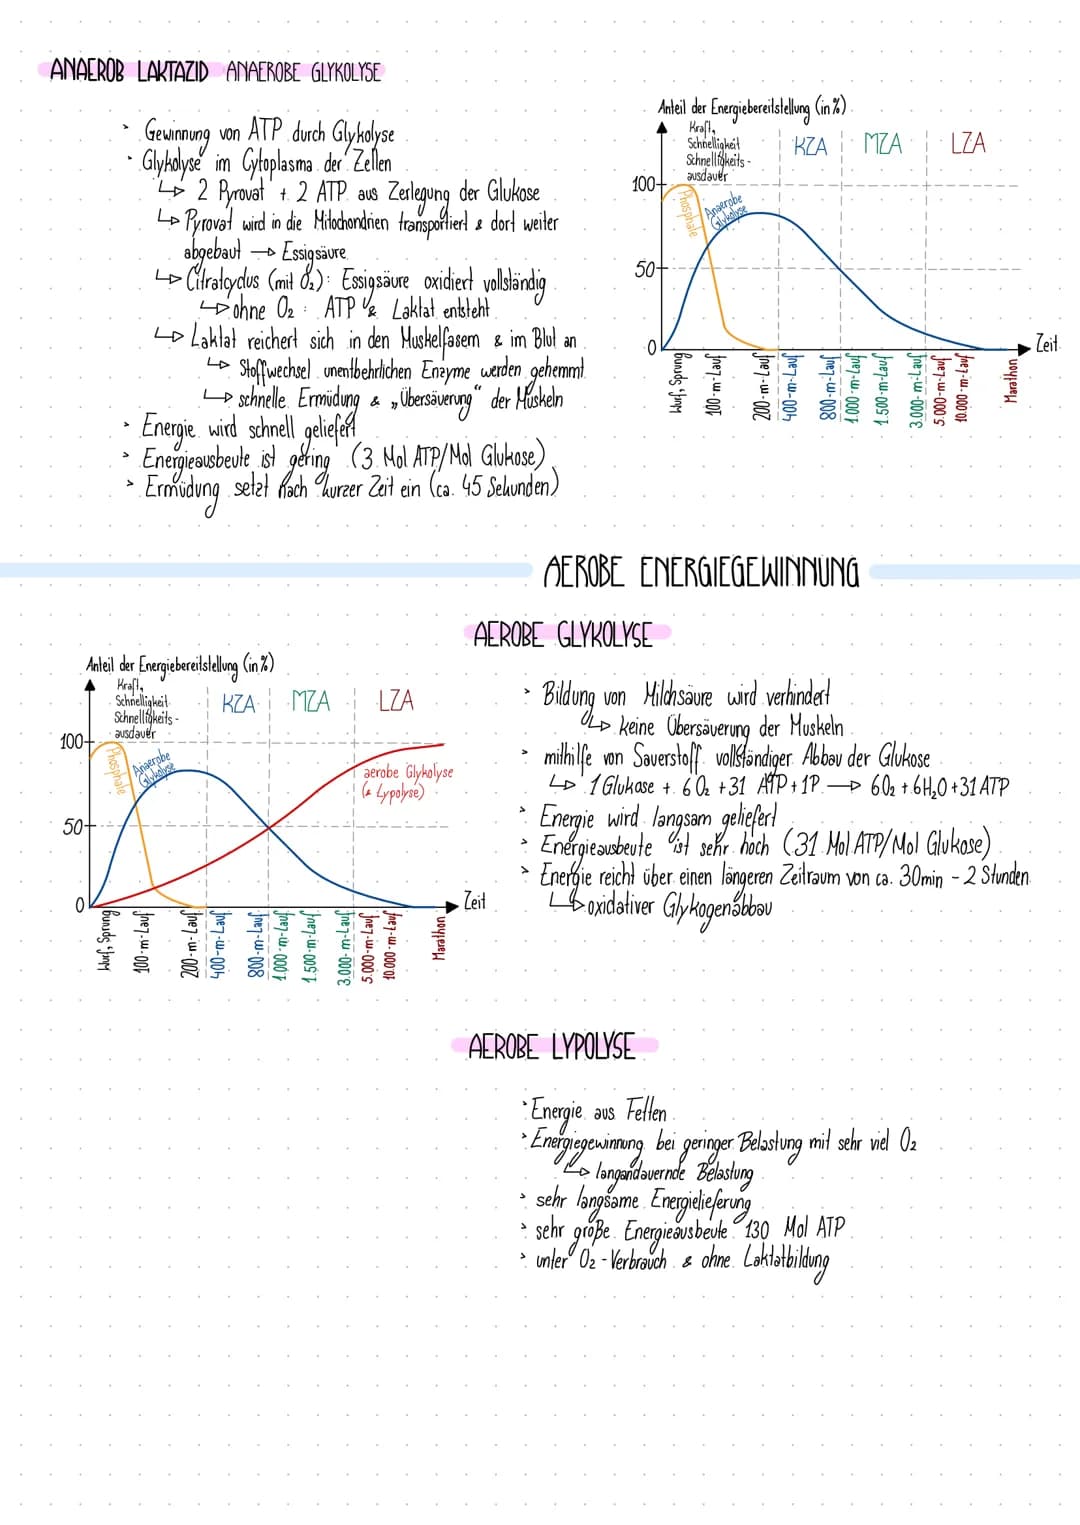 ANAEROB LAKTAZID ANAEROBE GLYKOLYSE
• Gewinnung von ATP durch Glykolyse
• Glykolyse im Cytoplasma der Zellen
↳ 2 Pyrovat + 2 ATP aus Zerlegung der Glukose
↳ Pyrovat wird in die Mitochondrien transportiert & dort weiter
abgebaut → Essigsäure
↳ Citratcyclus (mit O₂): Essigsäure oxidiert vollständig
↳ ohne O₂ : ATP & Laktat entsteht
↳ Laktat reichert sich in den Muskelfasern & im Blut an
↳ Stoffwechsel unentbehrlichen Enzyme werden gehemmt
↳ schnelle Ermüdung & „Übersäuerung“ der Muskeln
• Energie wird schnell geliefert
• Energieausbeute ist gering (3 Mol ATP/Mol Glukose)
• Ermüdung setzt nach kurzer Zeit ein (ca. 45 Sekunden)
Anteil der Energiebereitstellung (in %)
Kraft,
Schnelligkeit
Schnelligkeits-
ausdauer
KZA MZA LZA
100
Phosphate
Anaerobe
Glykolyse
50
0
Zeit
Wurf, Sprung
100-m-Lauf
200-m-Lauf
400-m-Lauf
800-m-Lauf
1.000-m-Lauf
1.500-m-Lauf
3.000-m-Lauf
5.000-m-Lauf
10.000-m-Lauf
Marathon
AEROBE ENERGIEGEWINNUNG
AEROBE GLYKOLYSE
Anteil der Energiebereitstellung (in %)
Kraft,
Schnelligkeit
Schnelligkeits-
ausdauer
KZA MZA LZA
100
Phosphate
Anaerobe
Glykolyse
aerobe Glykolyse
(& Lypolyse)
50
0
Zeit
Wurf, Sprung
100-m-Lauf
200-m-Lauf
400-m-Lauf
800-m-Lauf
1.000-m-Lauf
1.500-m-Lauf
3.000-m-Lauf
5.000-m-Lauf
10.000-m-Lauf
Marathon
• Bildung von Milchsäure wird verhindert
↳ keine Übersäuerung der Muskeln
• mithilfe von Sauerstoff vollständiger Abbau der Glukose
↳ 1 Glukose + 6 O₂ + 31 ATP + 1P → 6O₂ + 6H₂O + 31 ATP
• Energie wird langsam geliefert
• Energieausbeute ist sehr hoch (31 Mol ATP/Mol Glukose)
• Energie reicht über einen längeren Zeitraum von ca. 30min - 2 Stunden
↳ oxidativer Glykogenabbau
AEROBE LYPOLYSE
• Energie aus Fetten
• Energiegewinnung bei geringer Belastung mit sehr viel O₂
↳ langandauernde Belastung
• sehr langsame Energielieferung
• sehr große Energieausbeute 130 Mol ATP
• unter O₂-Verbrauch & ohne Laktatbildung